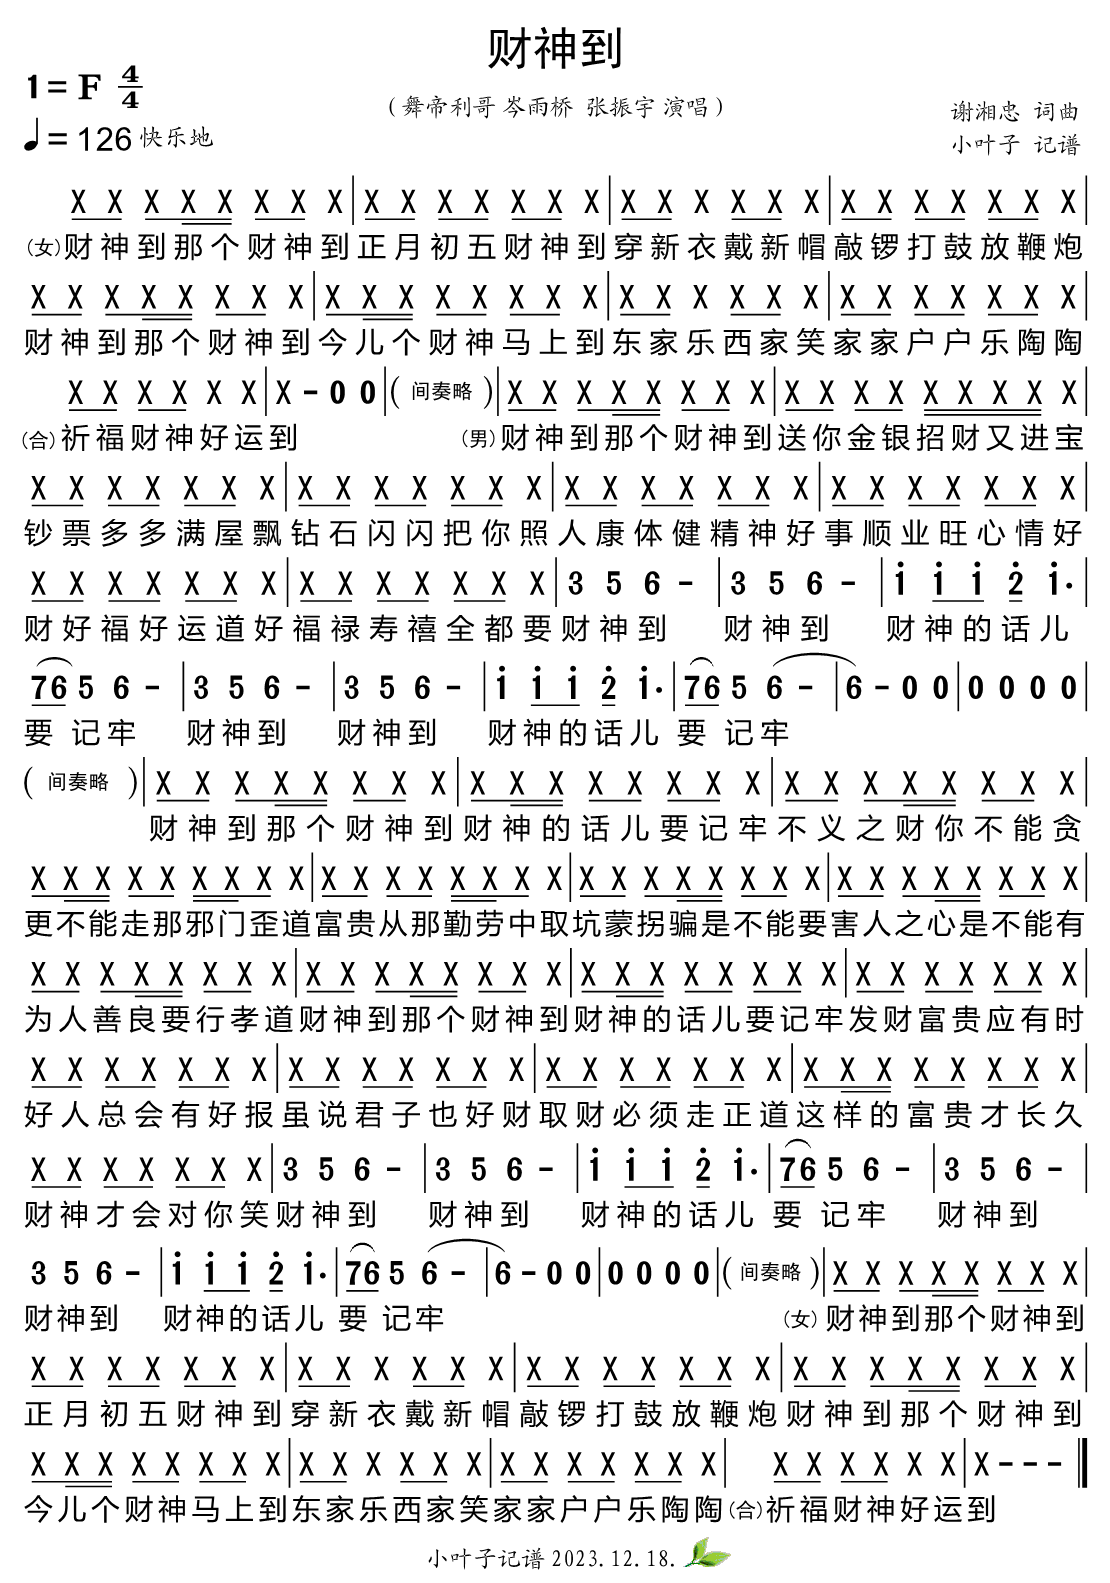 财神到
1=F 4/4
(舞帝利哥 岑雨桥 张振宇 演唱)
谢湘忠 词曲
♩=126 快乐地
小叶子 记谱
X X X X X X X X | X X X X X X X | X X X X X X X | X X X X X X X |
(女)财神到那个财神到正月初五财神到穿新衣戴新帽敲锣打鼓放鞭炮
X X X X X X X X | X X X X X X X X | X X X X X X X | X X X X X X X |
财神到那个财神到今儿个财神马上到东家乐西家笑家家户户乐陶陶
X X X X X X X | X - 0 0 | ( 间奏略 ) | X X X X X X X X | X X X X X X X X X |
(合)祈福财神好运到 (男)财神到那个财神到送你金银招财又进宝
X X X X X X X | X X X X X X X | X X X X X X X | X X X X X X X |
钞票多多满屋飘钻石闪闪把你照人康体健精神好事顺业旺心情好
X X X X X X X | X X X X X X X | 3 5 6 - | 3 5 6 - | i i i 2 i. |
财好福好运道好福禄寿禧全都要财神到 财神到 财神的话儿
76 5 6 - | 3 5 6 - | 3 5 6 - | i i i 2 i. | 76 5 6 - | 6 - 0 0 | 0 0 0 0 |
要 记牢 财神到 财神到 财神的话儿 要 记牢
( 间奏略 ) | X X X X X X X X | X X X X X X X X | X X X X X X X X |
财神到那个财神到财神的话儿要记牢不义之财你不能贪
X X X X X X X X X | X X X X X X X X | X X X X X X X X | X X X X X X X X |
更不能走那邪门歪道富贵从那勤劳中取坑蒙拐骗是不能要害人之心是不能有
X X X X X X X X | X X X X X X X X | X X X X X X X X | X X X X X X X |
为人善良要行孝道财神到那个财神到财神的话儿要记牢发财富贵应有时
X X X X X X X | X X X X X X X | X X X X X X X | X X X X X X X X |
好人总会有好报虽说君子也好财取财必须走正道这样的富贵才长久
X X X X X X X | 3 5 6 - | 3 5 6 - | i i i 2 i. | 76 5 6 - | 3 5 6 - |
财神才会对你笑财神到 财神到 财神的话儿 要 记牢 财神到
3 5 6 - | i i i 2 i. | 76 5 6 - | 6 - 0 0 | 0 0 0 0 | ( 间奏略 ) | X X X X X X X X |
财神到 财神的话儿 要 记牢 (女)财神到那个财神到
X X X X X X X | X X X X X X X | X X X X X X X | X X X X X X X X |
正月初五财神到穿新衣戴新帽敲锣打鼓放鞭炮财神到那个财神到
X X X X X X X X | X X X X X X | X X X X X X X | X X X X X X X | X - - - ‖
今儿个财神马上到东家乐西家笑家家户户乐陶陶(合)祈福财神好运到
小叶子记谱 2023.12.18.